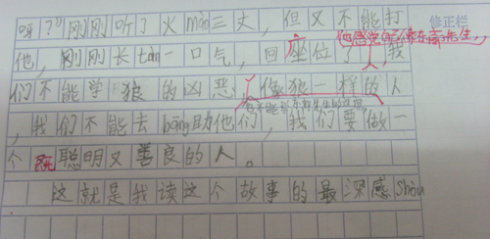 呀？”刚刚听了火mào三丈，但又不能打
修正栏
他，刚刚长tàn一口气，回座位了。我
们不能学狼的凶恶，像狼一样的人
，我们不能去bāng助他们，我们要做一
个既聪明又善良的人。
这就是我读这个故事的最深感shòu